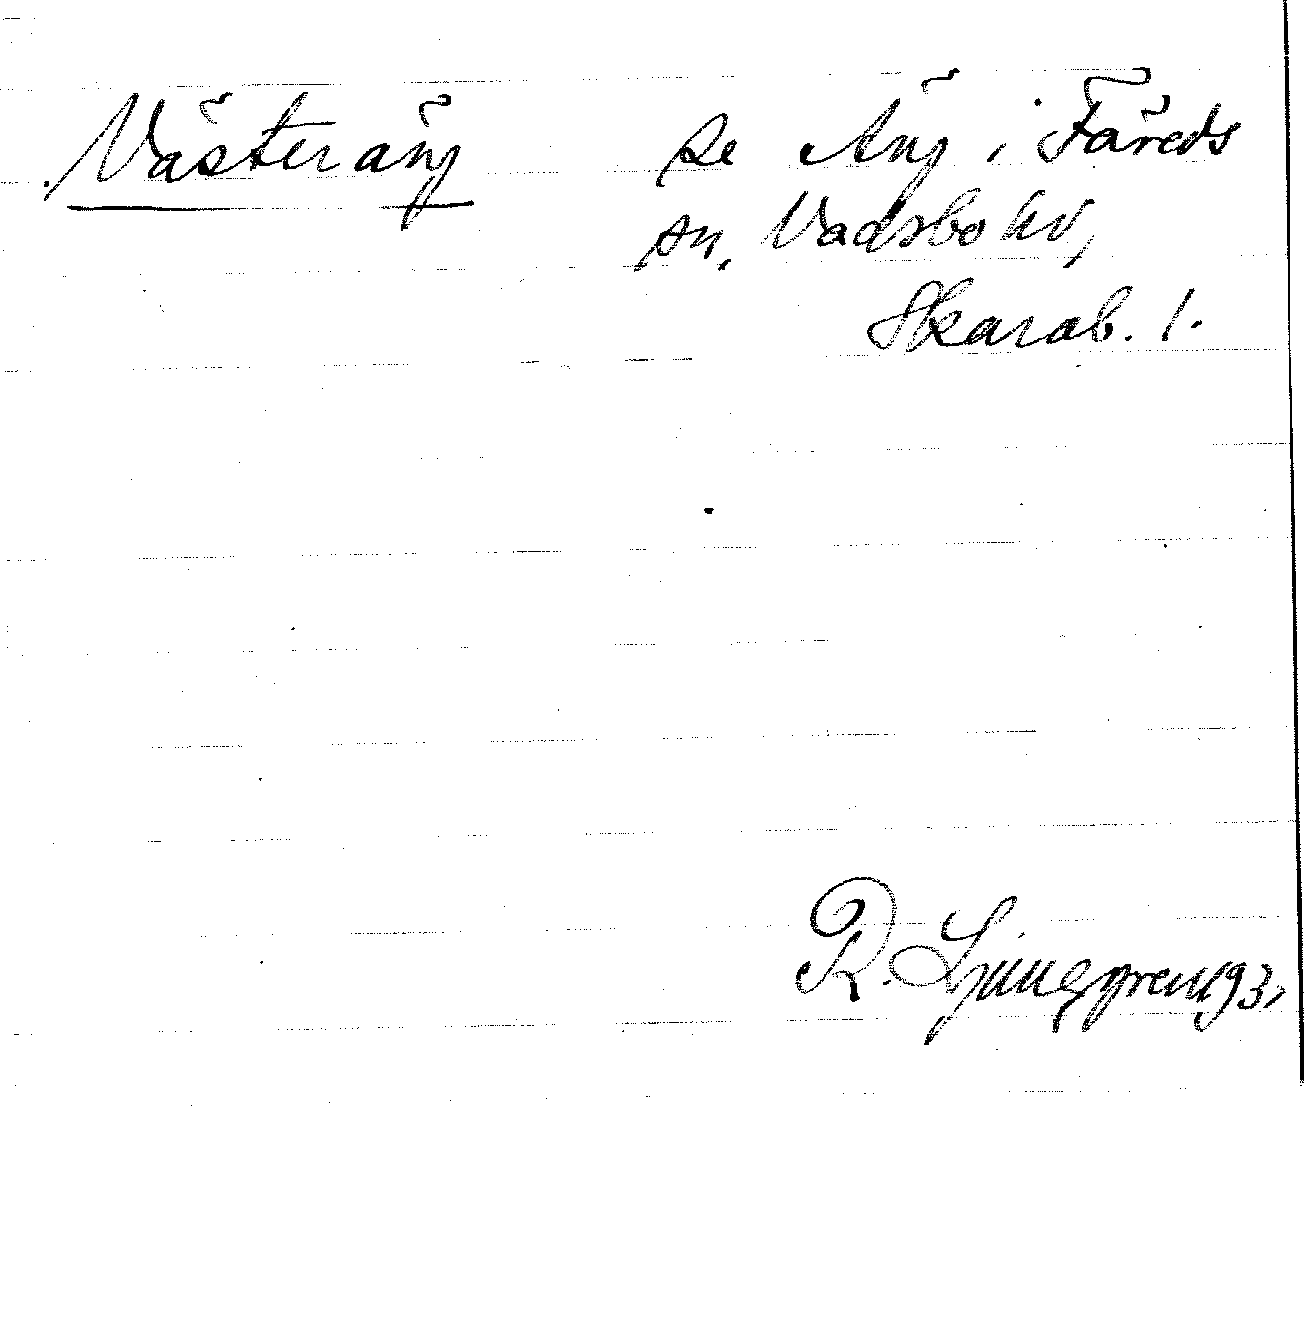 Västeräng se Äng i Färeds
sn, Vadsbo hd,
Skarab. l.
R. Ljunggren 193